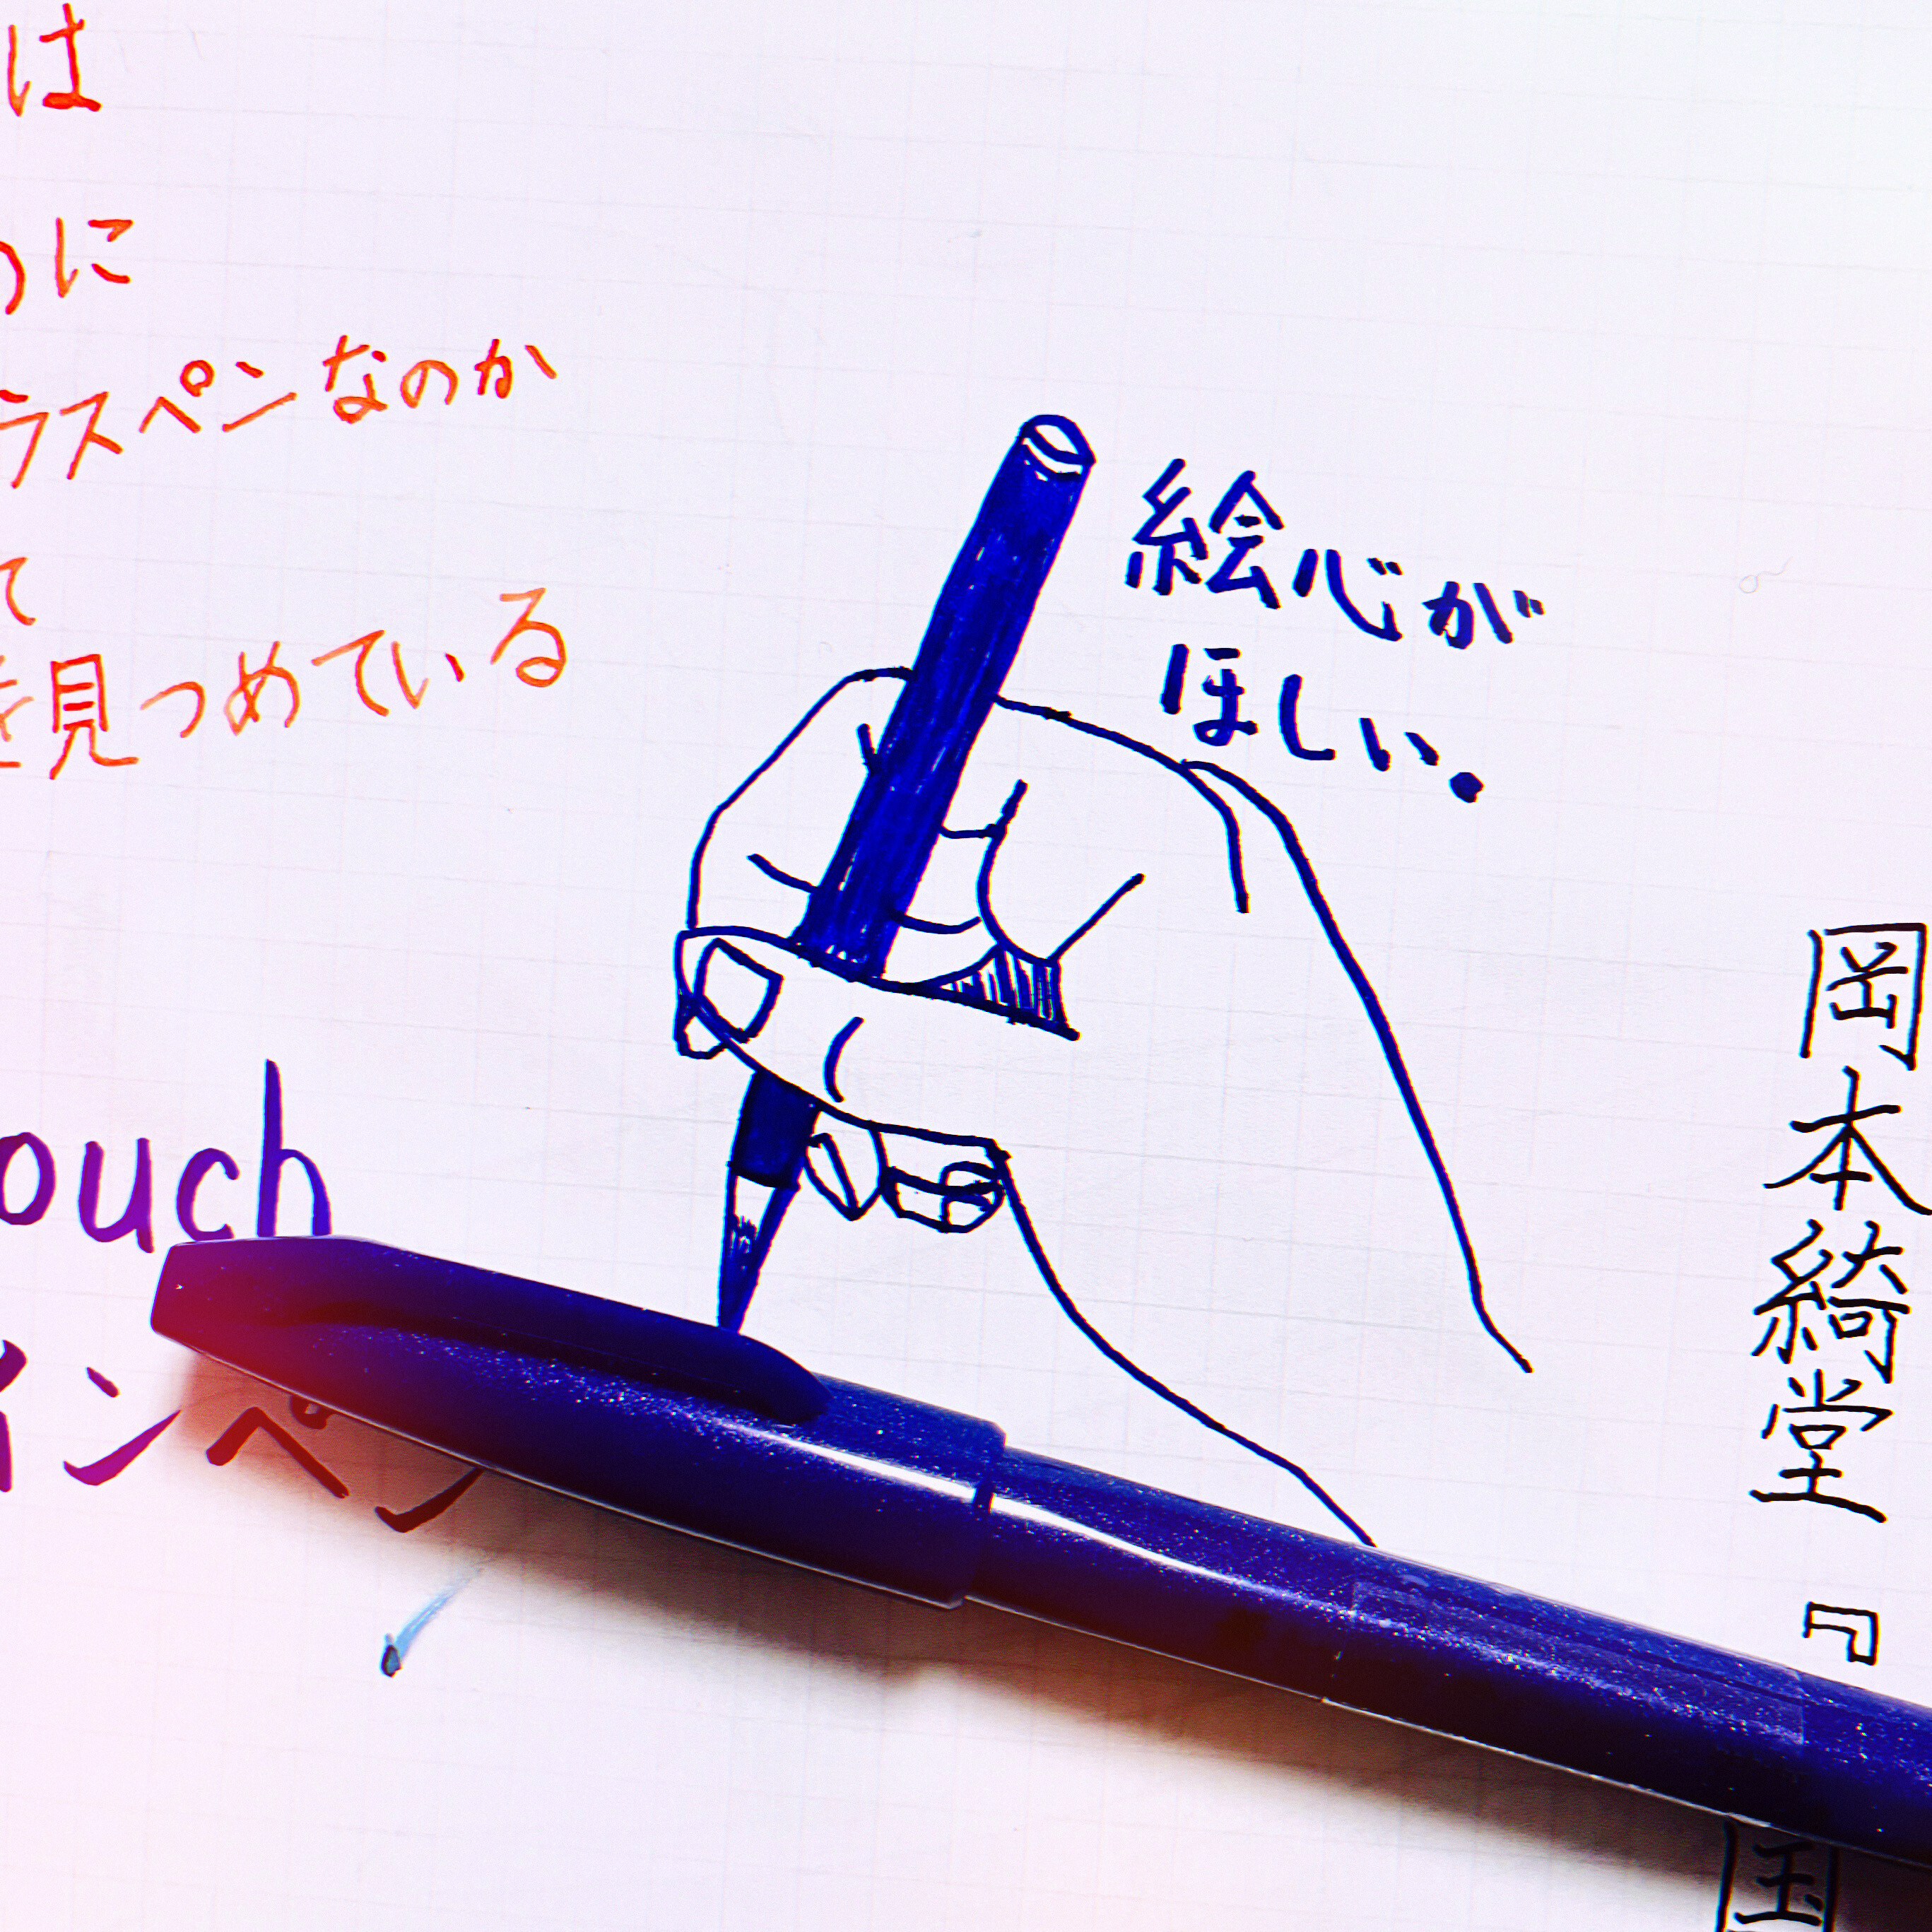 は
に
ラスペンなのか
て
を見つめている
絵心が
ほしい。
ouch
インペン
岡本綺堂『
国